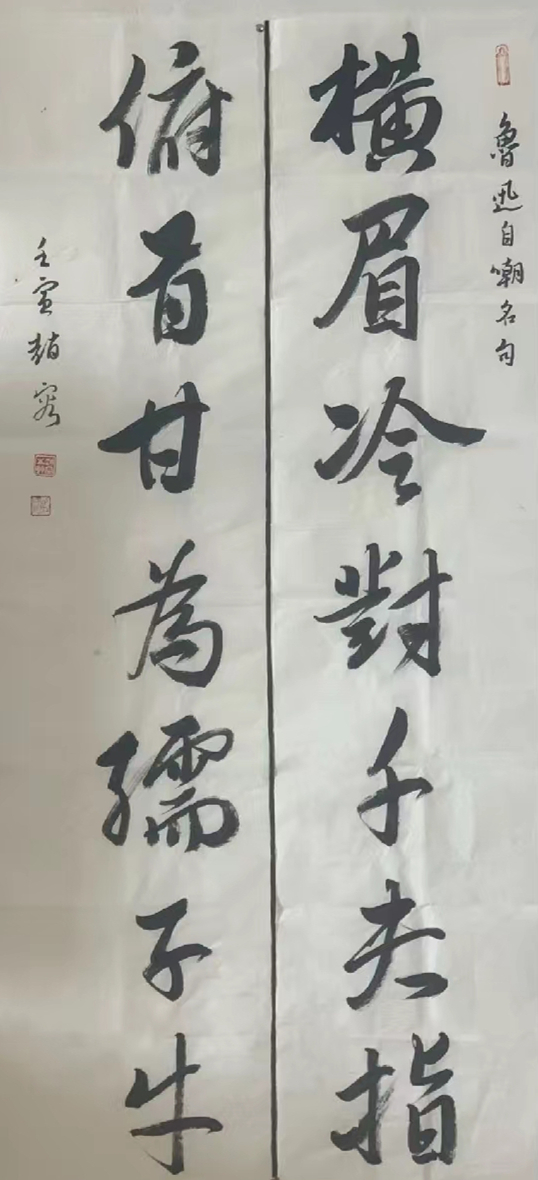 魯迅自嘲名句
橫眉冷對千夫指
俯首甘為孺子牛
壬寅趙